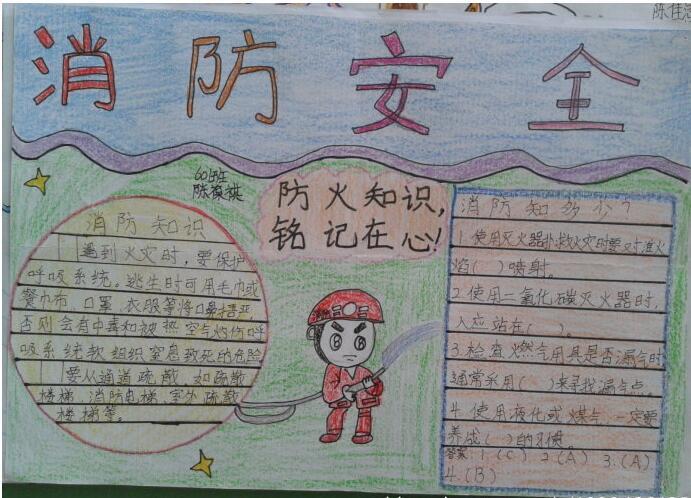 陈佳
消防安全
601班
陈筱祺
防火知识，
铭记在心！
消防知识
遇到火灾时，要保护
呼吸系统。逃生时可用毛巾或
餐巾布、口罩、衣服等将口鼻捂严，
否则会有中毒和被热空气灼伤呼
吸系统软组织窒息致死的危险
要从通道疏散，如疏散
楼梯、消防电梯、室外疏散
楼梯等。
消防知多少？
1.使用灭火器扑救火灾时要对准火
焰（ ）喷射。
2.使用二氧化碳灭火器时，
人应站在（ ）。
3.检查燃气用具是否漏气时
通常采用（ ）来寻找漏气点。
4.使用液化或煤气，一定要
养成（ ）的习惯。
答案：1.(C) 2(A) 3.(A)
4.(B)